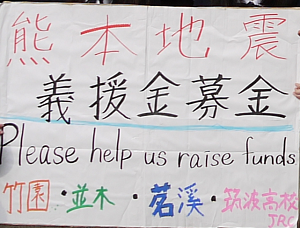 熊本地震
義援金募金
Please help us raise funds
竹園・並木・茗溪・筑波高校
JRC